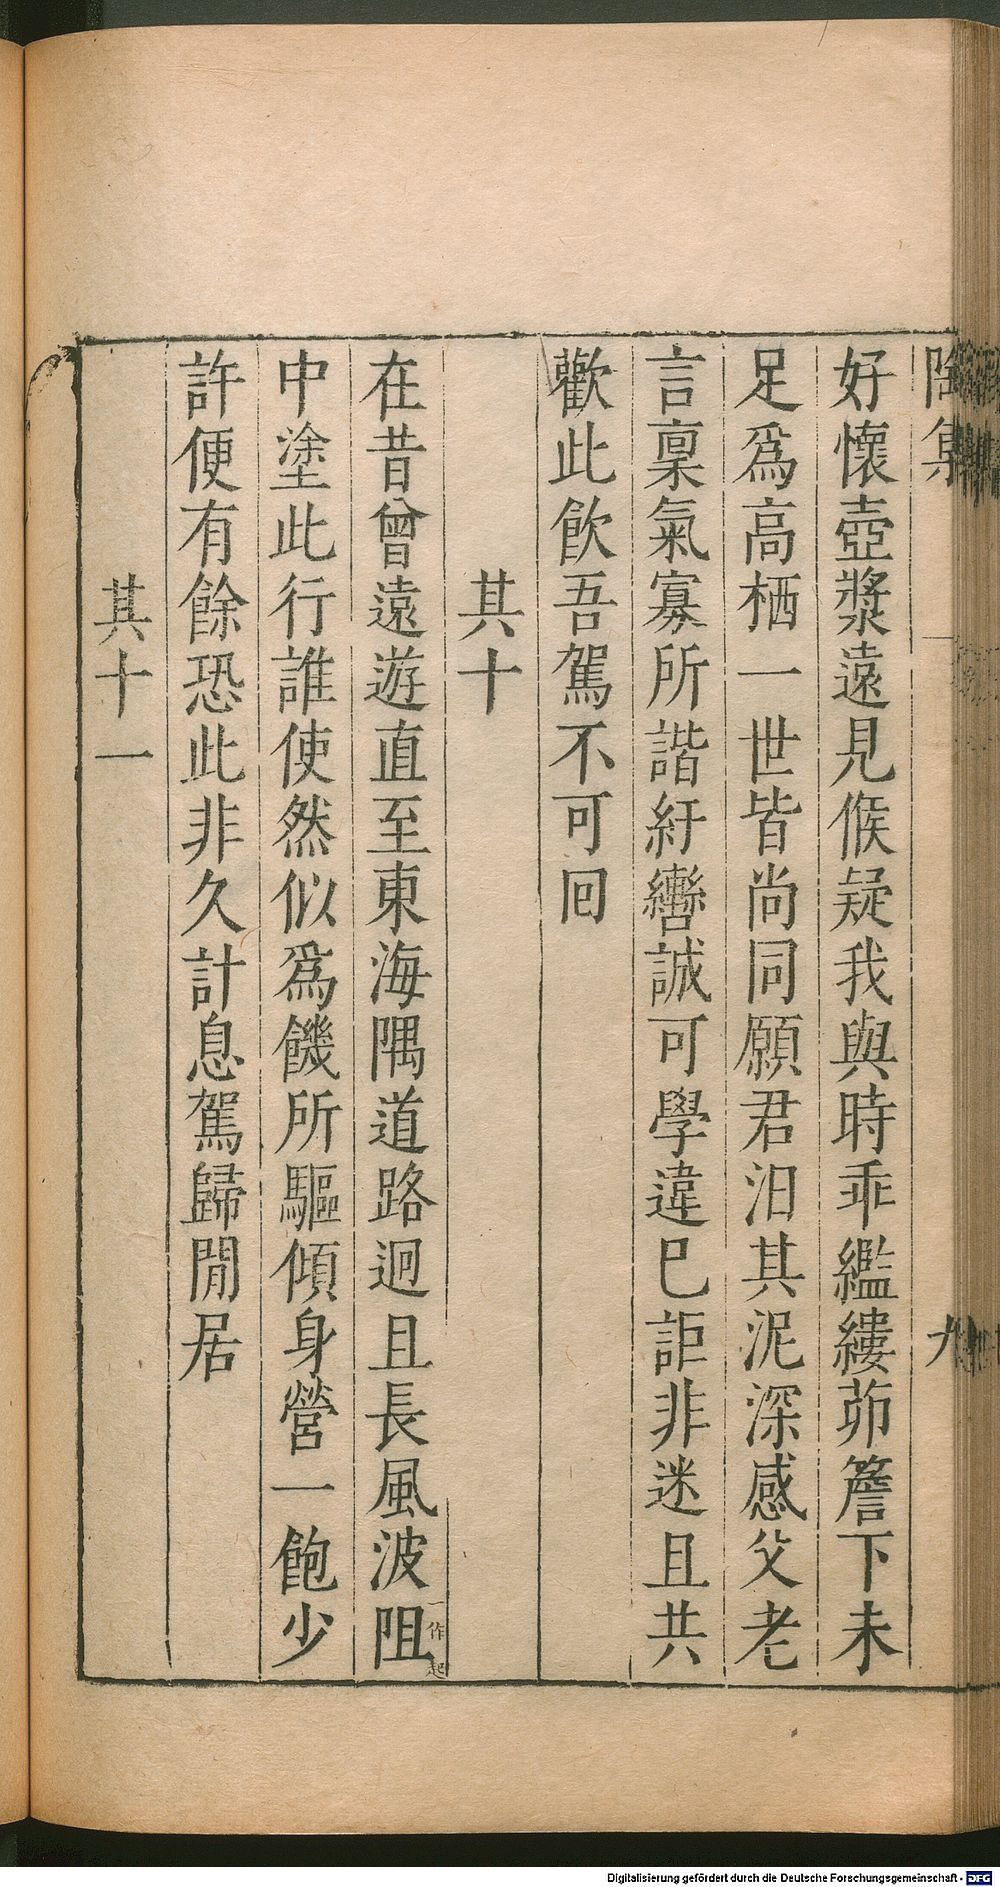 陶集
九
好懷壺漿遠見候疑我與時乖繿縷茆簷下未
足爲高栖一世皆尚同願君汩其泥深感父老
言稟氣寡所諧紆轡誠可學違已詎非迷且共
歡此飲吾駕不可回
其十
在昔曾遠遊直至東海隅道路迥且長風波阻一作起
中塗此行誰使然似爲饑所驅傾身營一飽少
許便有餘恐此非久計息駕歸閒居
其十一
Digitalisierung gefördert durch die Deutsche Forschungsgemeinschaft - DFG